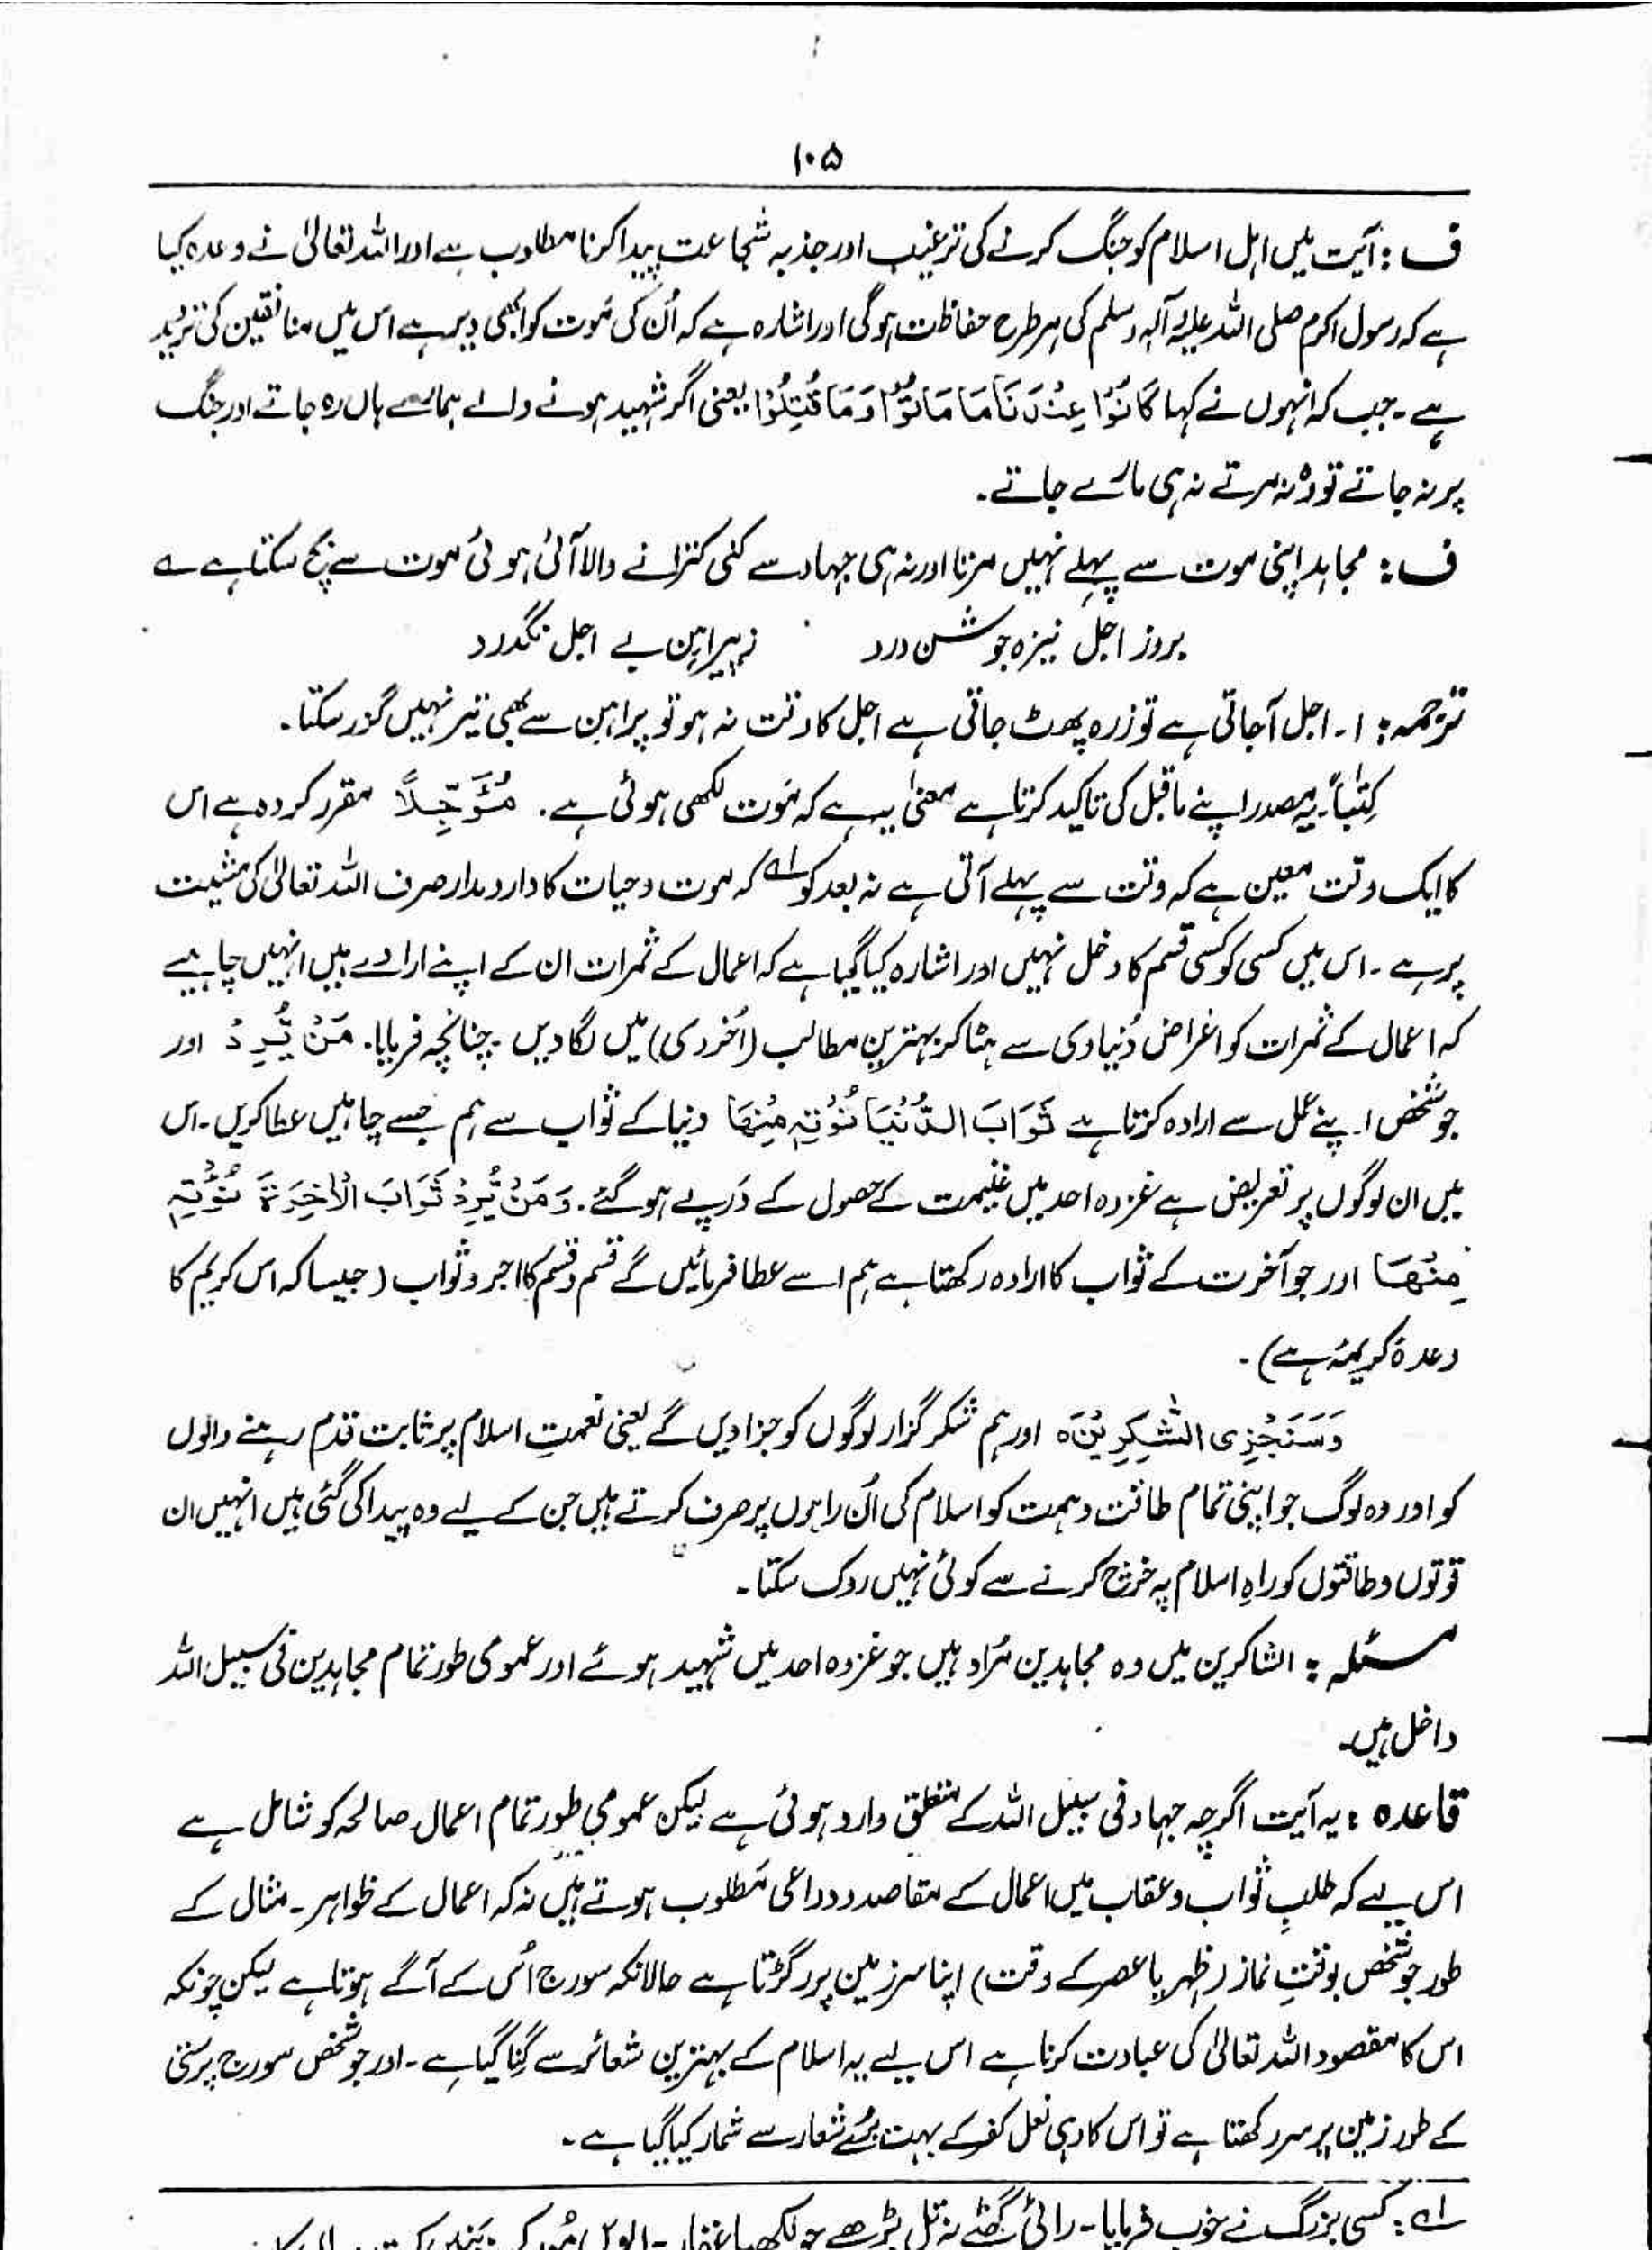 ۱۰۵
ف : آیت میں اہل اسلام کو جنگ کرنے کی ترغیب اور جذبہ شجاعت پیدا کرنا مطلوب ہے اور اللہ تعالیٰ نے وعدہ کیا
ہے کہ رسول اکرم صلی اللہ علیہ وآلہ وسلم کی ہر طرح حفاظت ہوگی اور اشارہ ہے کہ اُن کی مَوت کو ابھی دیر ہے اس میں منافقین کی تردید
ہے ۔ جب کہ انہوں نے کہا کَانُوْا عِنْدَنَا مَا مَاتُوْا وَمَا قُتِلُوْا یعنی اگر شہید ہونے والے ہمارے ہاں رہ جاتے اور جنگ
پر نہ جاتے تو وُہ نہ مرتے نہ ہی مارے جاتے۔
ف : مجاہد اپنی موت سے پہلے نہیں مرتا اور نہ ہی جہاد سے کنی کترانے والا آئی ہوئی موت سے بچ سکتا ہے ؎
بروز اجل نیزہ جوشن درد زپیراہن بے اجل نگذرد
ترجمہ : ۱۔ اجل آجاتی ہے تو زرہ پھٹ جاتی ہے اجل کا وقت نہ ہو تو پراہن سے بھی تیر نہیں گزر سکتا۔
کِتٰباً۔ یہ مصدر اپنے ماقبل کی تاکید کرتا ہے معنیٰ یہ ہے کہ مَوت لکھی ہوئی ہے۔ مُؤَجَّلاً مقرر کردہ ہے اس
کا ایک وقت معین ہے کہ وقت سے پہلے آتی ہے نہ بعد کو لہ کہ موت و حیات کا دارومدار صرف اللہ تعالیٰ کی مشیت
پر ہے ۔ اس میں کسی کو کسی قسم کا دخل نہیں اور اشارہ کیا گیا ہے کہ اعمال کے ثمرات ان کے اپنے ارادے ہیں انہیں چاہیے
کہ اعمال کے ثمرات کو اغراض دُنیاوی سے ہٹا کر بہترین مطالب (اُخروی) میں لگا دیں ۔ چنانچہ فرمایا۔ مَنْ یُّرِدْ اور
جو شخص اپنے عمل سے ارادہ کرتا ہے ثَوَابَ الدُّنْیَا نُؤْتِہٖ مِنْھَا دنیا کے ثواب سے ہم جسے چاہیں عطا کریں۔ اس
میں ان لوگوں پر تعریض ہے غزوہ احد میں غنیمت کے حصول کے دَرپے ہوگئے۔ وَمَنْ یُّرِدْ ثَوَابَ الْاٰخِرَۃِ نُؤْتِہٖ
مِنْھَا اور جو آخرت کے ثواب کا ارادہ رکھتا ہے ہم اسے عطا فرمائیں گے قسم و قسم کا اجر و ثواب (جیسا کہ اس کریم کا
وعدۂ کریمہ ہے) ۔
وَسَنَجْزِی الشّٰکِرِیْنَ ہ اور ہم شکر گزار لوگوں کو جزا دیں گے یعنی نعمتِ اسلام پر ثابت قدم رہنے والوں
کو اور وہ لوگ جو اپنی تمام طاقت و ہمت کو اسلام کی اُن راہوں پر صرف کرتے ہیں جن کے لیے وہ پیدا کی گئی ہیں انہیں ان
قوتوں و طاقتوں کو راہِ اسلام پہ خرچ کرنے سے کوئی نہیں روک سکتا۔
مسئلہ : الشاکرین میں وہ مجاہدین مُراد ہیں جو غزوہ احد میں شہید ہوئے اور عمومی طور تمام مجاہدین فی سبیل اللہ
داخل ہیں۔
قاعدہ : یہ آیت اگرچہ جہاد فی سبیل اللہ کے متعلق وارد ہوئی ہے لیکن عمومی طور تمام اعمال صالحہ کو شامل ہے
اس لیے کہ طلبِ ثواب و عقاب میں اعمال کے مقاصد و دواعی مَطلوب ہوتے ہیں نہ کہ اعمال کے ظواہر۔ مثال کے
طور جو شخص بوقتِ نماز (ظہر یا عصر کے وقت) اپنا سر زمین پر رگڑتا ہے حالانکہ سورج اُس کے آگے ہوتا ہے لیکن چونکہ
اس کا مقصود اللہ تعالیٰ کی عبادت کرنا ہے اس لیے یہ اسلام کے بہترین شعائر سے گِنا گیا ہے ۔ اور جو شخص سورج پرستی
کے طور زمین پر سر رکھتا ہے تو اس کا وہی فعل کفر کے بہت بُرے شعار سے شمار کیا گیا ہے ۔
لہ : کسی بزرگ نے خوب فرمایا ۔ رائی گھٹے نہ تل بڑھے جو لکھیا غفار ۔